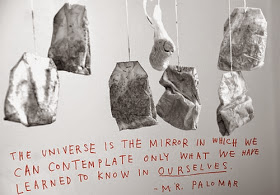 THE UNIVERSE IS THE MIRROR IN WHICH WE
CAN CONTEMPLATE ONLY WHAT WE HAVE
LEARNED TO KNOW IN OURSELVES.
-MR. PALOMAR